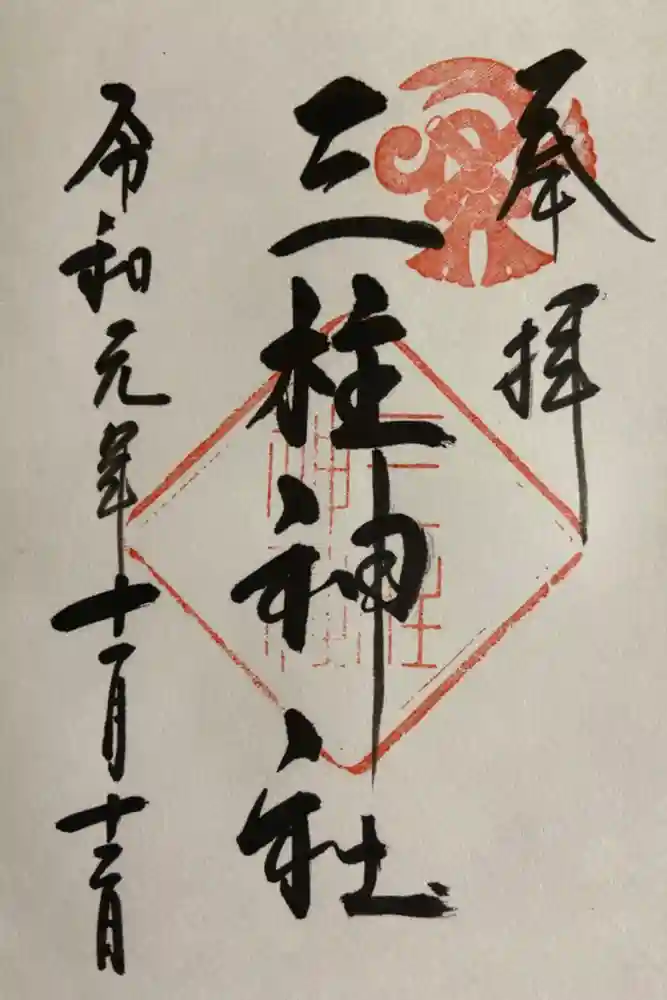 奉拝
三柱神社
令和元年十一月十二日